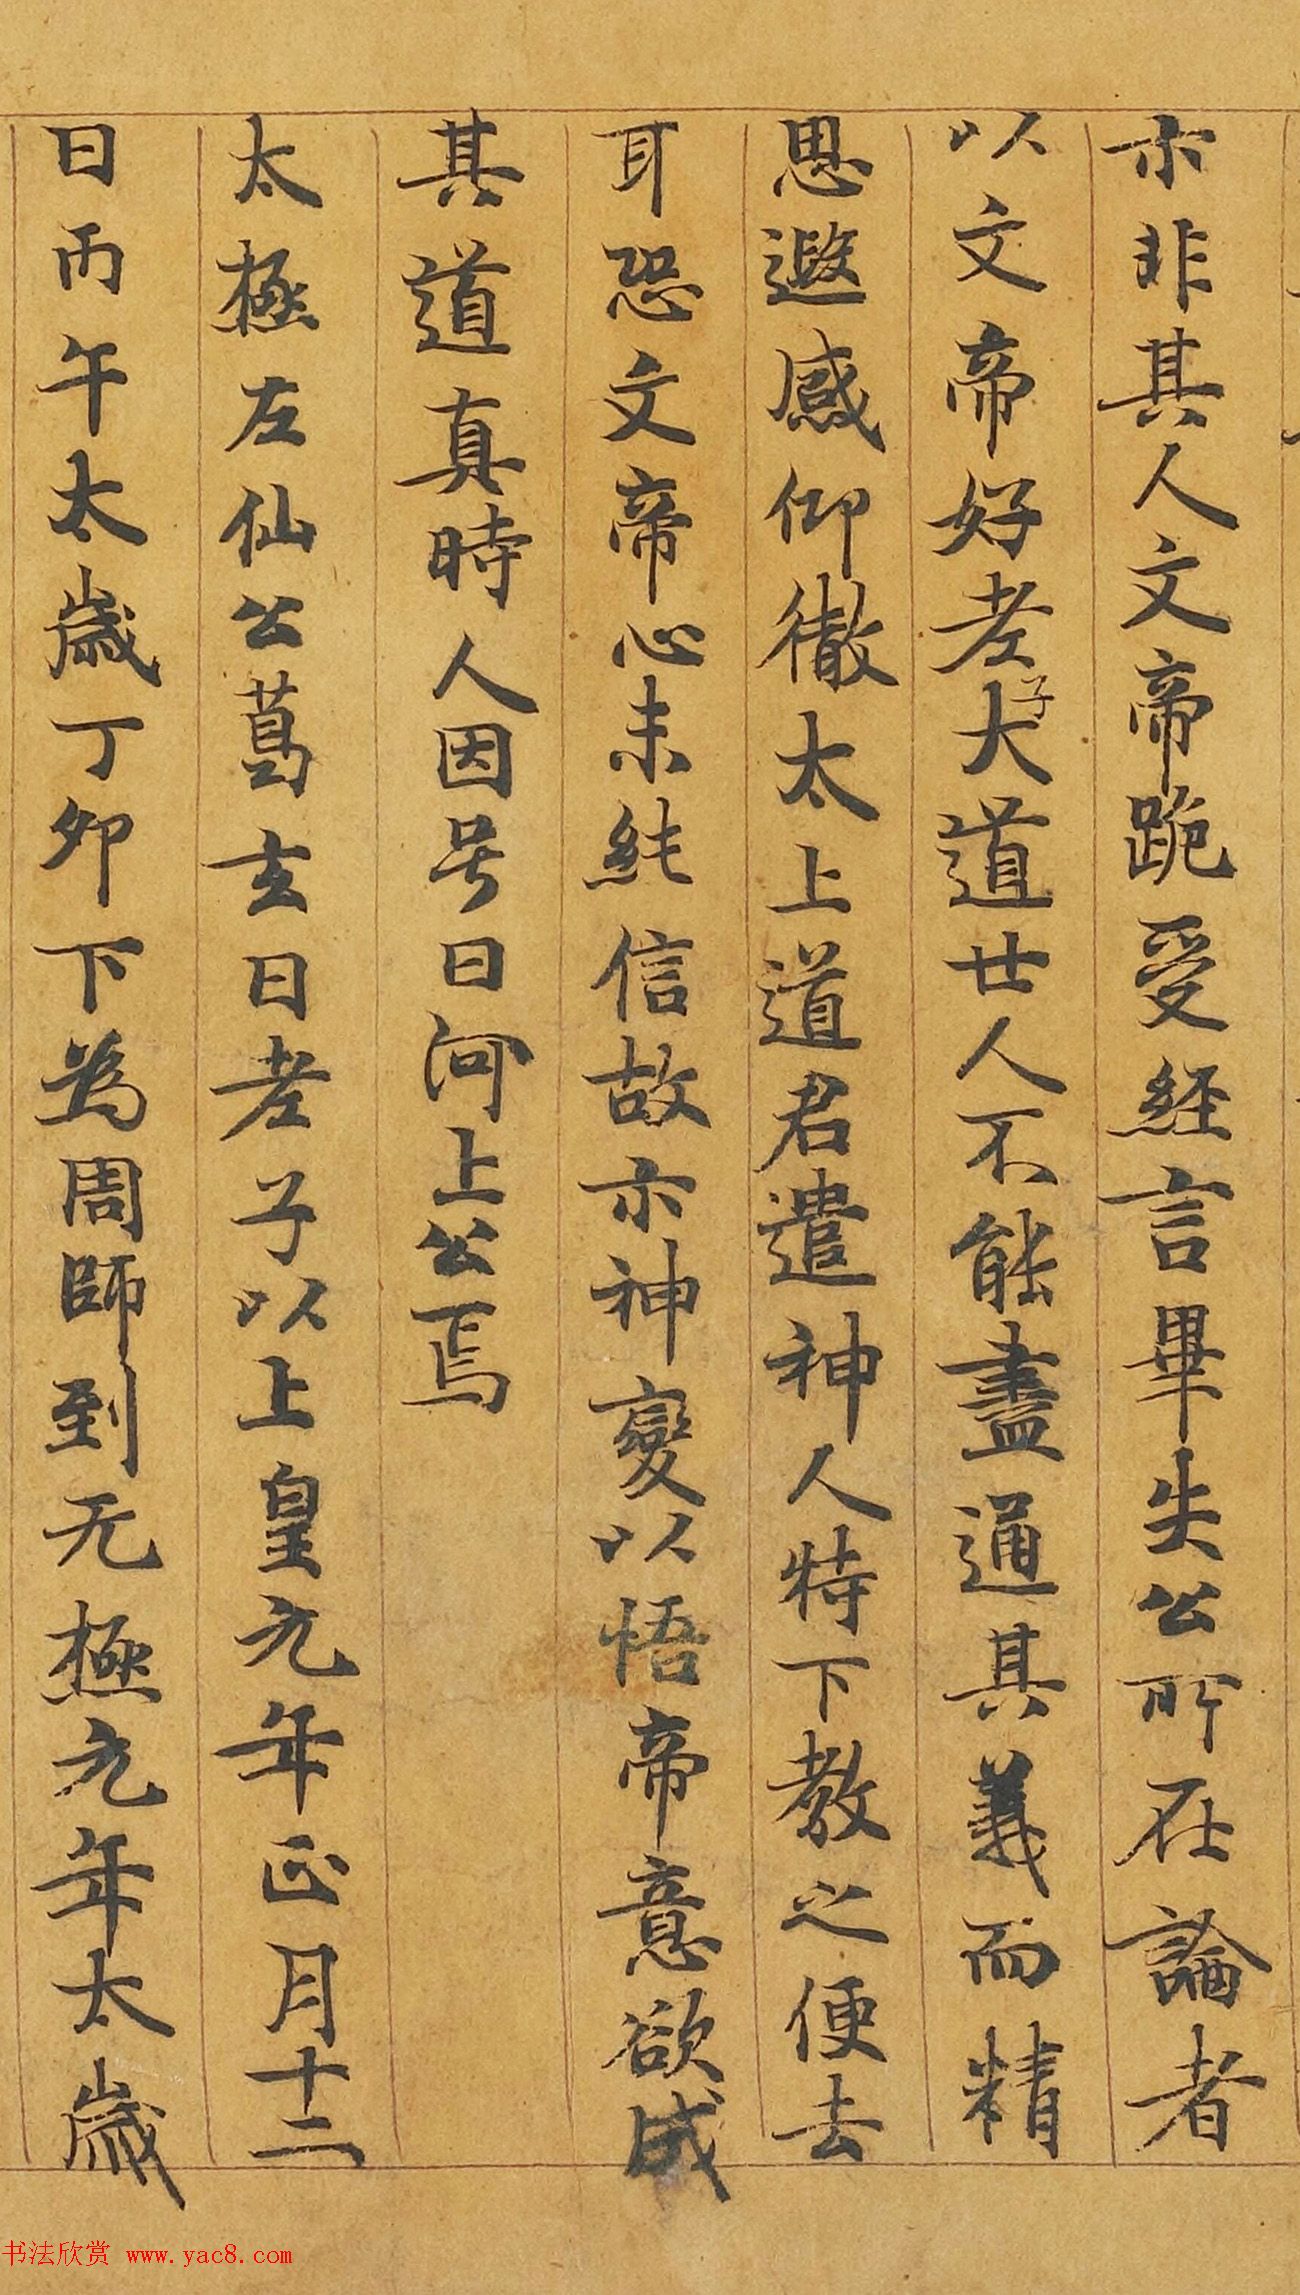 亦非其人文帝跪受經言畢失公所在論者
以文帝好老子大道世人不能盡通其義而精
思遐感仰徹太上道君遣神人特下教之便去
耳恐文帝心未純信故示神變以悟帝意欲成
其道真時人因号曰河上公焉
太極左仙公葛玄曰老子以上皇元年正月十二
日丙午太歲丁卯下為周師到无極元年太歲
书法欣赏 www.yac8.com